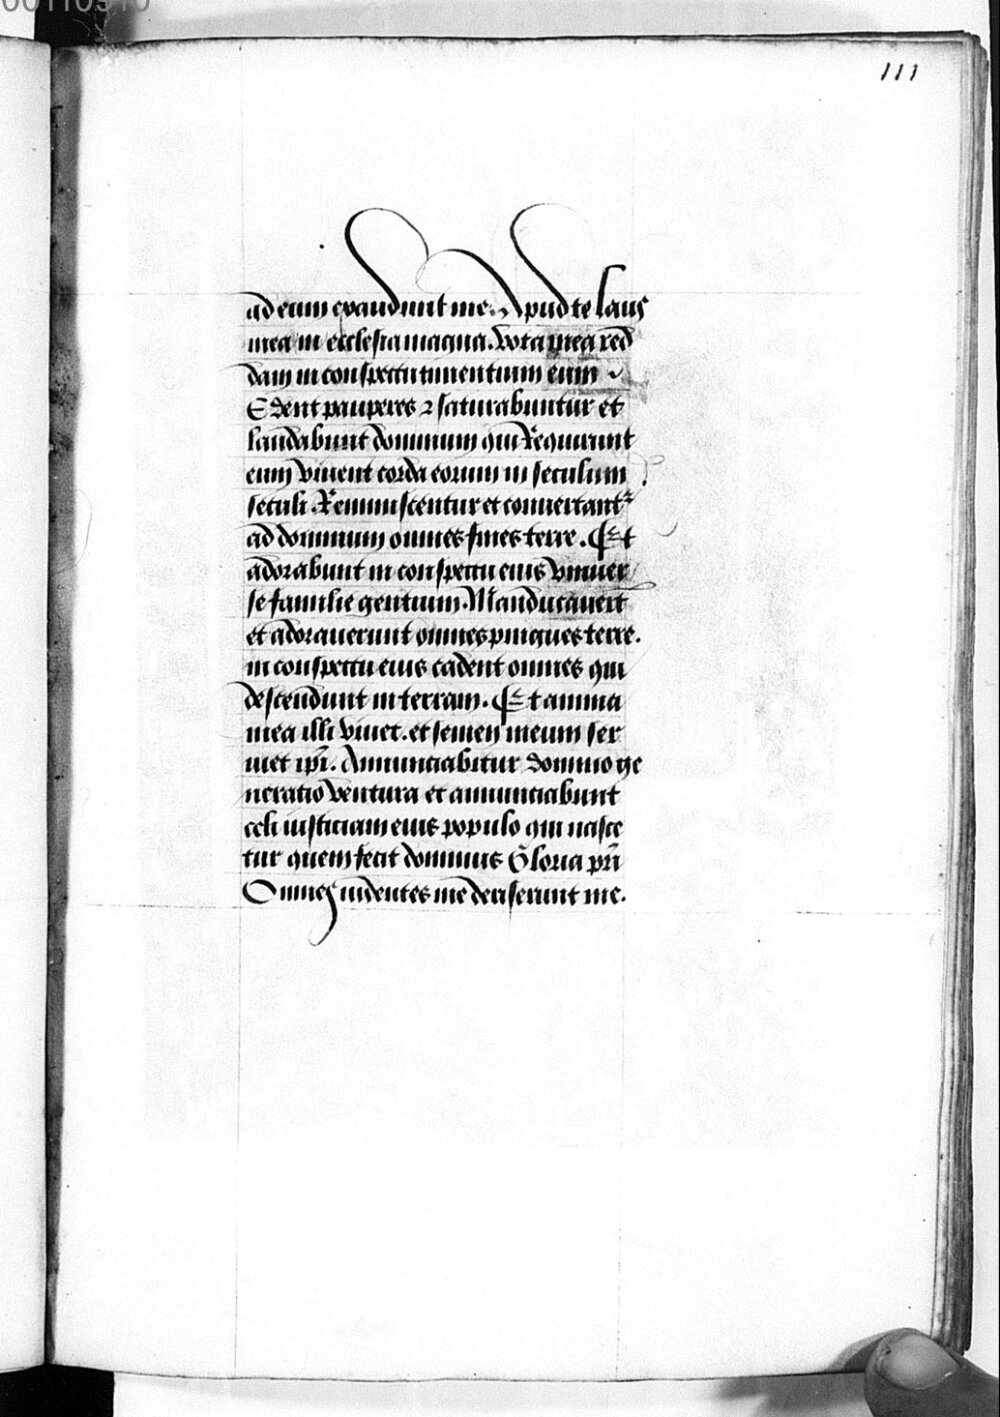 111
ad eum exaudiuit me. Apud te laus
mea in ecclesia magna. vota mea red
dam in conspectu timentium eum
Edent pauperes ⁊ saturabuntur et
laudabunt dominum qui Requirunt
eum viuent corda eorum in seculum
seculi. Reminiscentur et conuertantʳ
ad dominum omnes fines terre. Et
adorabunt in conspectu eius vniuer
se familie gentium. Manducauerūt
et adorauerunt omnes pingues terre.
in conspectu eius cadent omnes qui
descendunt in terram. Et anima
mea illi viuet. et semen meum ser
uiet ipi̅. Annunciabitur domino ge
neratio ventura et annunciabunt
celi iusticiam eius populo qui nasce
tur quem fecit dominus Gloria pr̅i
Omnes uidentes me deriserunt me.